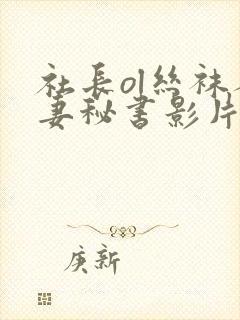 社長ol絲袜
妻秘書影片
庚新